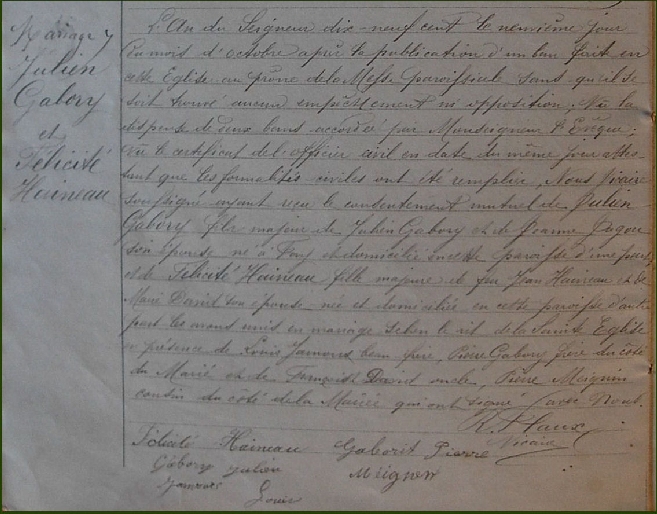 Mariage
Julien
Gabory
et
Félicité
Haineau
L'An du Seigneur dix-neuf cent le neuvième jour
du mois d'octobre après la publication d'un ban fait en
cette Eglise au prône de la Messe paroissiale sans qu'il se
soit trouvé aucun empêchement ni opposition; Vu la
dispense de deux bans accordée par Monseigneur l'Evêque;
Vu le certificat de l'officier civil en date du même jour attes
tant que les formalités civiles ont été remplies, Nous Vicaire
soussigné ayant reçu le consentement mutuel de Julien
Gabory fils majeur de Julien Gabory et de Jeanne
son épouse né à et domicilié en cette paroisse d'une part
et de Félicité Haineau fille majeure de feu Jean Haineau et de
Marie David son épouse née et domiciliée en cette paroisse d'autre
part les avons unis en mariage selon le rit de la Sainte Eglise
en présence de Louis beau frère, Pierre Gabory frère du côté
du Marié et de David oncle, Pierre Meignen
cousin du côté de la Mariée qui ont signé avec Nous.
Vicaire
Félicité Haineau Gaborit Pierre
Gabory Julien Meignen
Louis